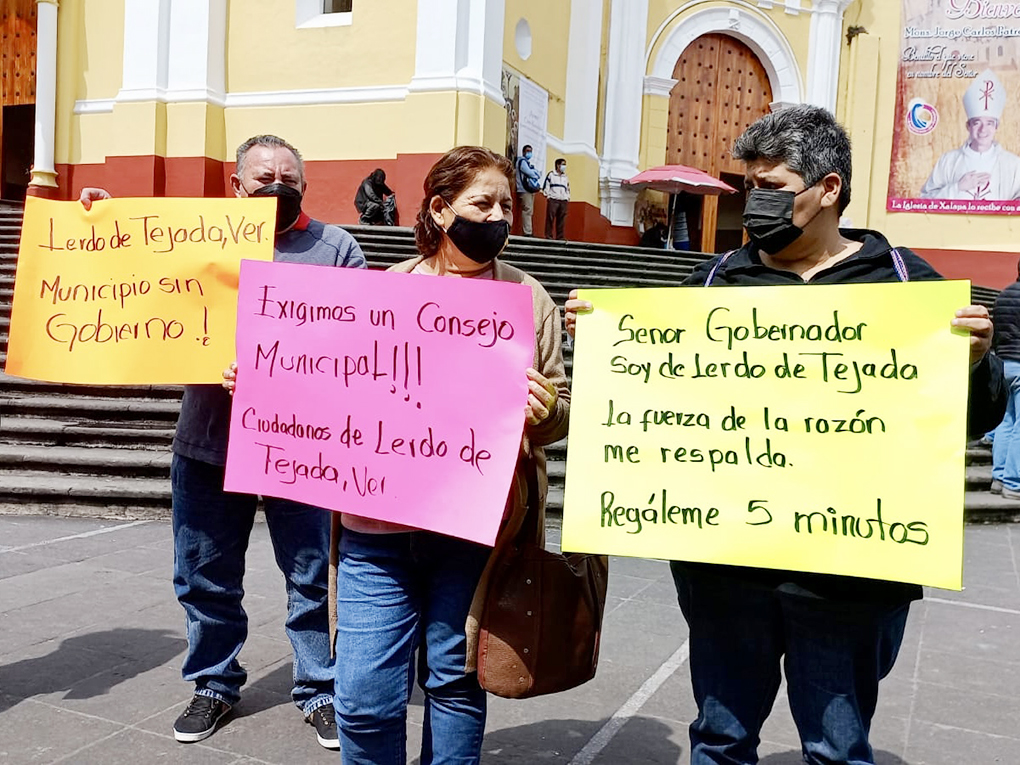 Lerdo de Tejada, Ver.
Municipio sin
Gobierno !
Exigimos un Consejo
Municipal!!!
Ciudadanos de Lerdo de
Tejada, Ver.
Señor Gobernador
Soy de Lerdo de Tejada
La fuerza de la razón
me respalda.
Regáleme 5 minutos
Mons. Jorge Carlos Patr
Bendito el que viene
en nombre del Señor
La Iglesia de Xalapa lo recibe con